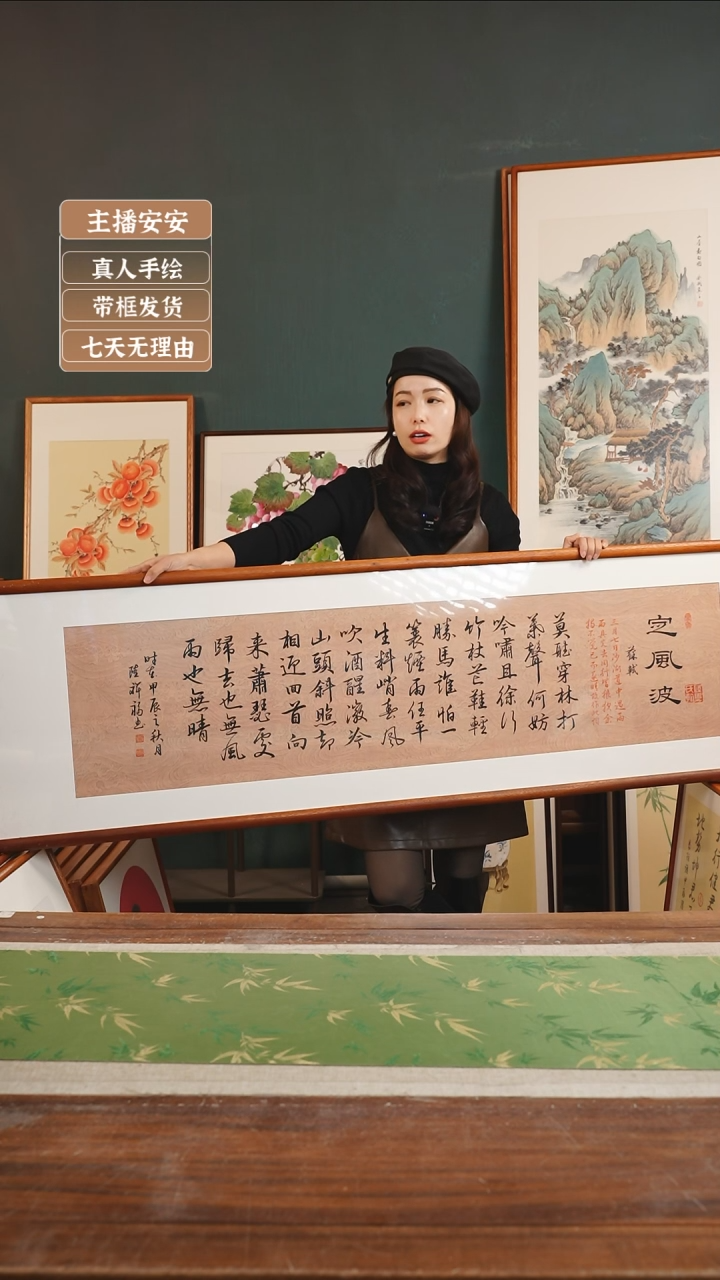 主播安安
真人手绘
带框发货
七天无理由
定風波
蘇軾
三月七日沙湖道中遇雨
莫聽穿林打
葉聲何妨
吟嘯且徐行
竹杖芒鞋輕
勝馬誰怕一
蓑煙雨任平
生料峭春風
吹酒醒微冷
山頭斜照却
相迎回首向
来蕭瑟處
歸去也無風
雨也無晴
時在甲辰之秋月